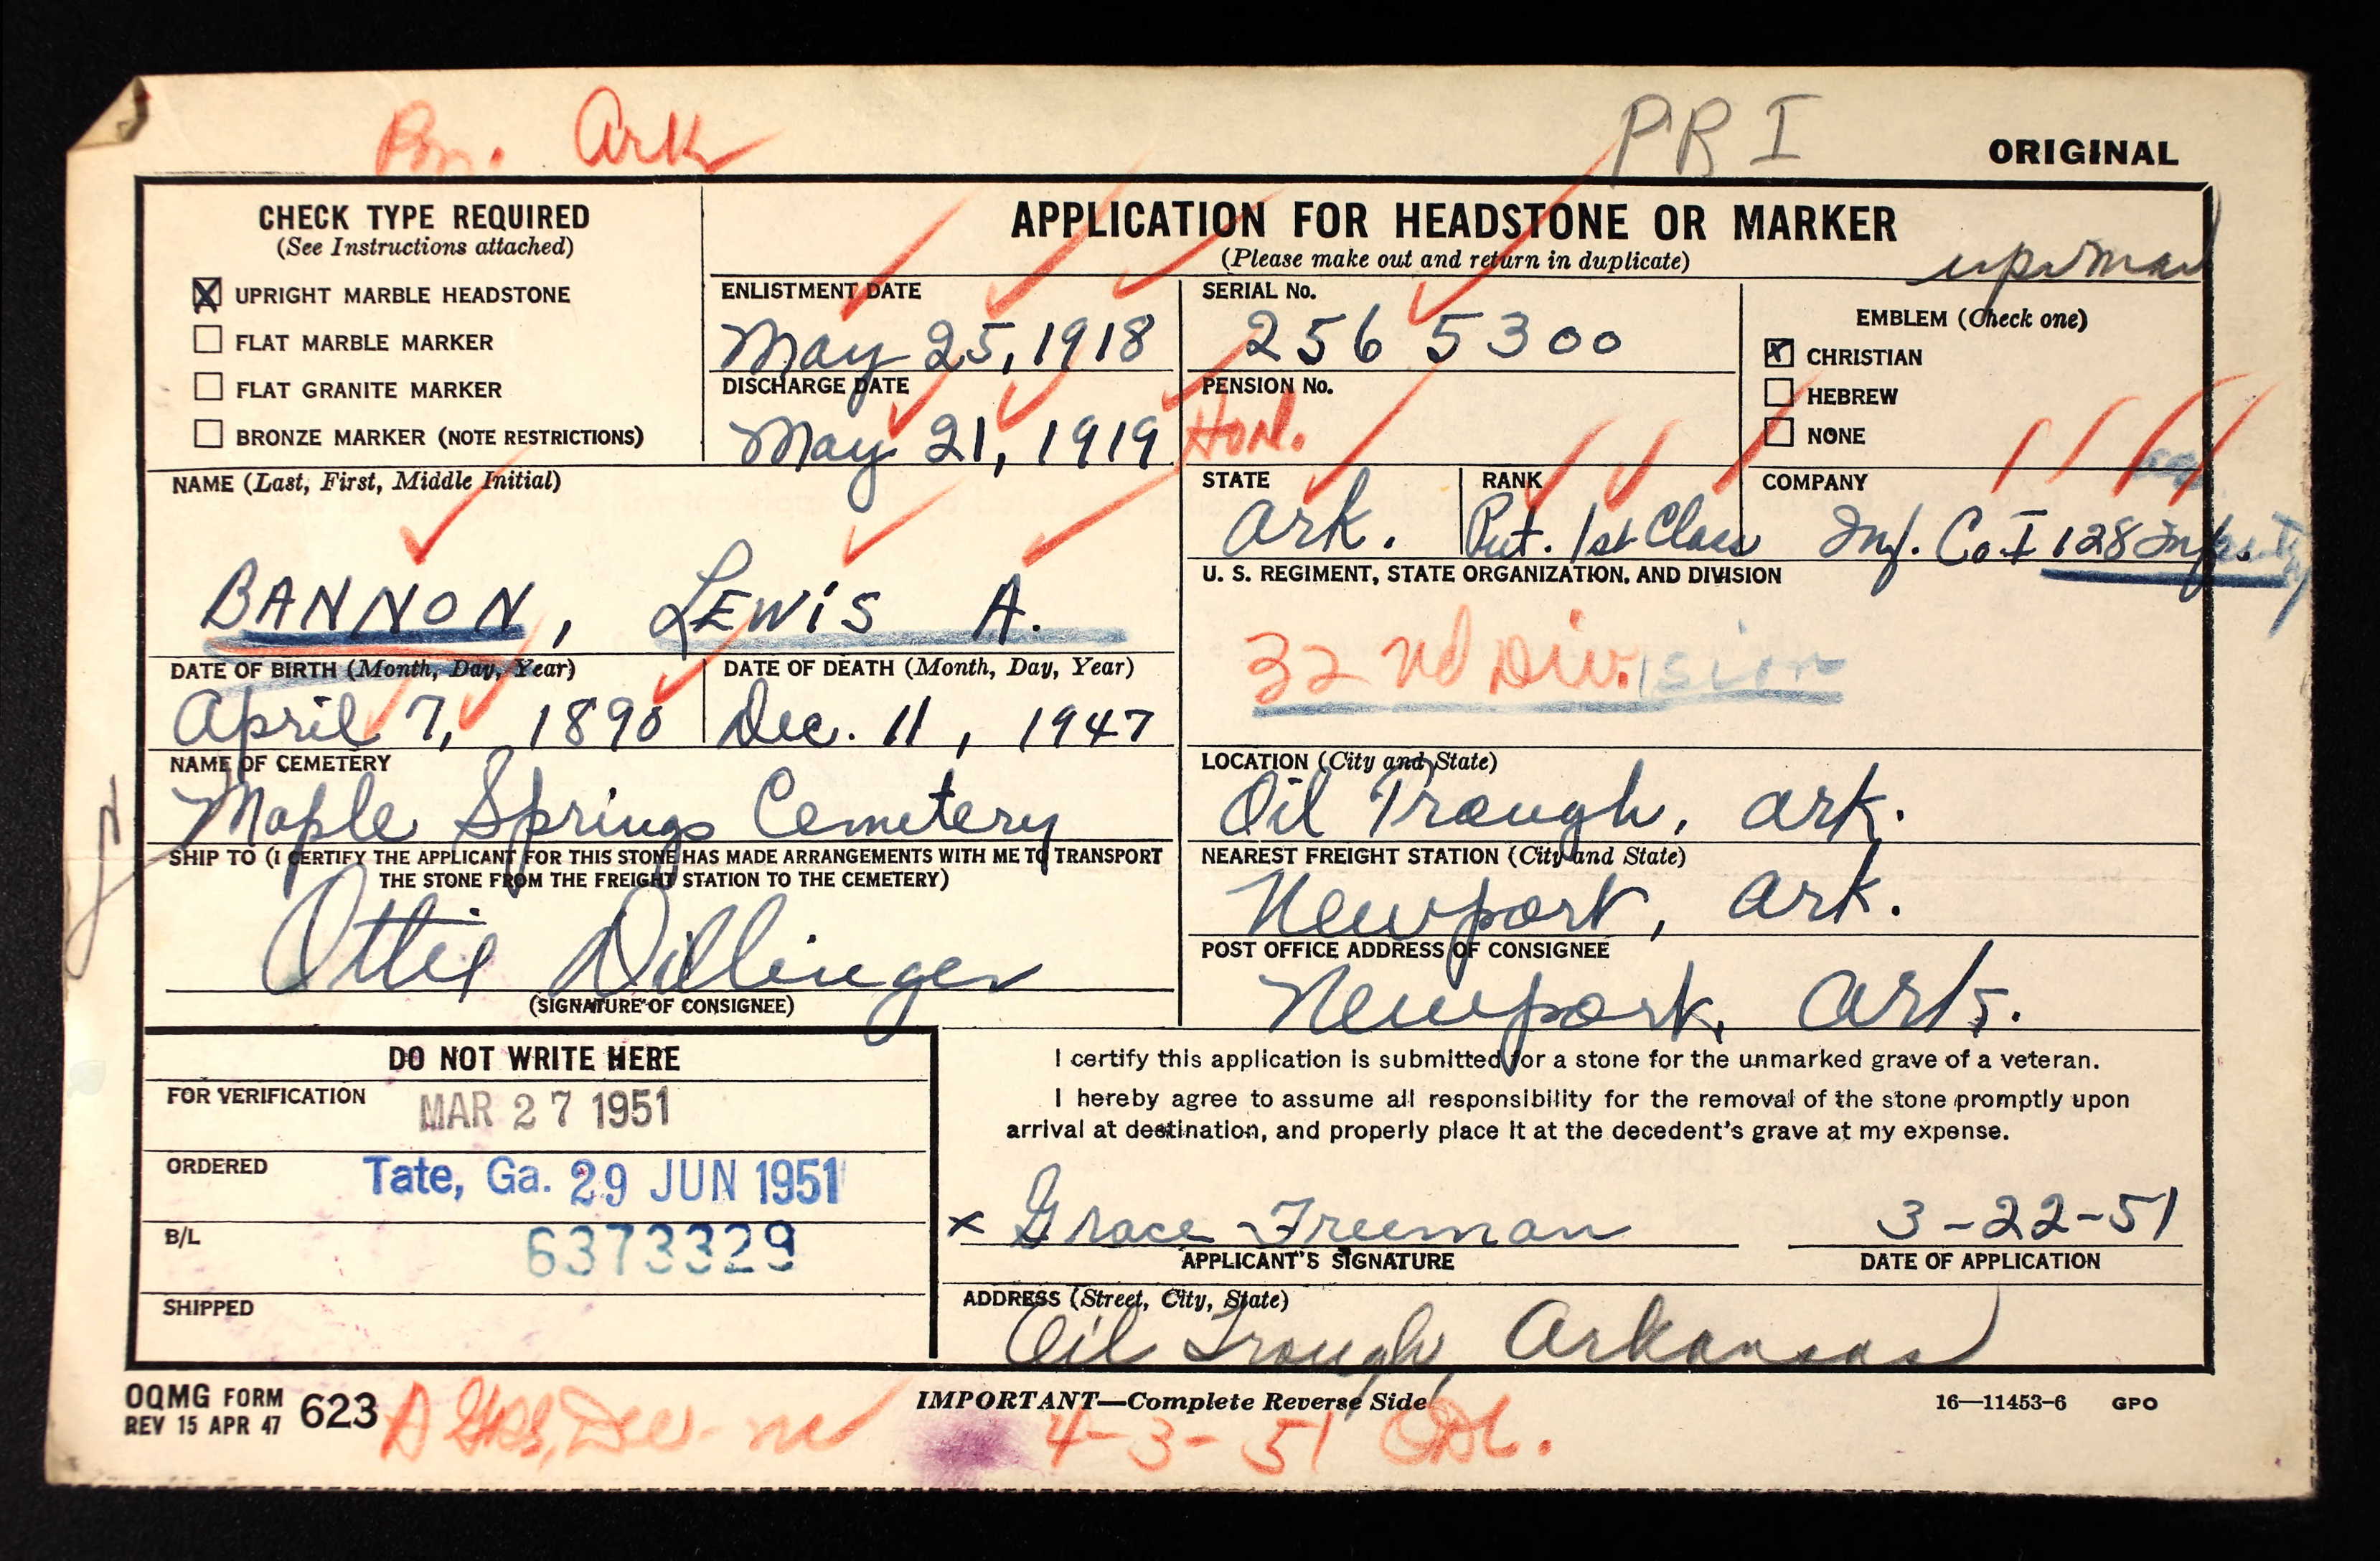 Ark
P R I
ORIGINAL
CHECK TYPE REQUIRED
(See Instructions attached)
UPRIGHT MARBLE HEADSTONE
FLAT MARBLE MARKER
FLAT GRANITE MARKER
BRONZE MARKER (NOTE RESTRICTIONS)
APPLICATION FOR HEADSTONE OR MARKER
(Please make out and return in duplicate)
ENLISTMENT DATE
May 25, 1918
DISCHARGE DATE
May 21, 1919
SERIAL No.
256 5300
PENSION No.
Hon.
EMBLEM (Check one)
CHRISTIAN
HEBREW
NONE
NAME (Last, First, Middle Initial)
BANNON, LEWIS A.
STATE
Ark.
RANK
Pvt. 1st Class
COMPANY
Inf. Co I 128 Infantry
U. S. REGIMENT, STATE ORGANIZATION, AND DIVISION
32nd Division
DATE OF BIRTH (Month, Day, Year)
April 7, 1890
DATE OF DEATH (Month, Day, Year)
Dec. 11, 1947
NAME OF CEMETERY
Maple Springs Cemetery
LOCATION (City and State)
Oil Trough, Ark.
SHIP TO (I CERTIFY THE APPLICANT FOR THIS STONE HAS MADE ARRANGEMENTS WITH ME TO TRANSPORT
THE STONE FROM THE FREIGHT STATION TO THE CEMETERY)
Ottis Dillinger
(SIGNATURE OF CONSIGNEE)
NEAREST FREIGHT STATION (City and State)
Newport, Ark.
POST OFFICE ADDRESS OF CONSIGNEE
Newport, Ark.
DO NOT WRITE HERE
FOR VERIFICATION
MAR 27 1951
ORDERED
Tate, Ga. 29 JUN 1951
B/L
6373329
SHIPPED
I certify this application is submitted for a stone for the unmarked grave of a veteran.
I hereby agree to assume all responsibility for the removal of the stone promptly upon
arrival at destination, and properly place it at the decedent's grave at my expense.
x Grace Freeman
APPLICANT'S SIGNATURE
3-22-51
DATE OF APPLICATION
ADDRESS (Street, City, State)
Oil Trough, Arkansas
OQMG FORM 623
REV 15 APR 47
IMPORTANT—Complete Reverse Side
16—11453-6 GPO
4-3-51